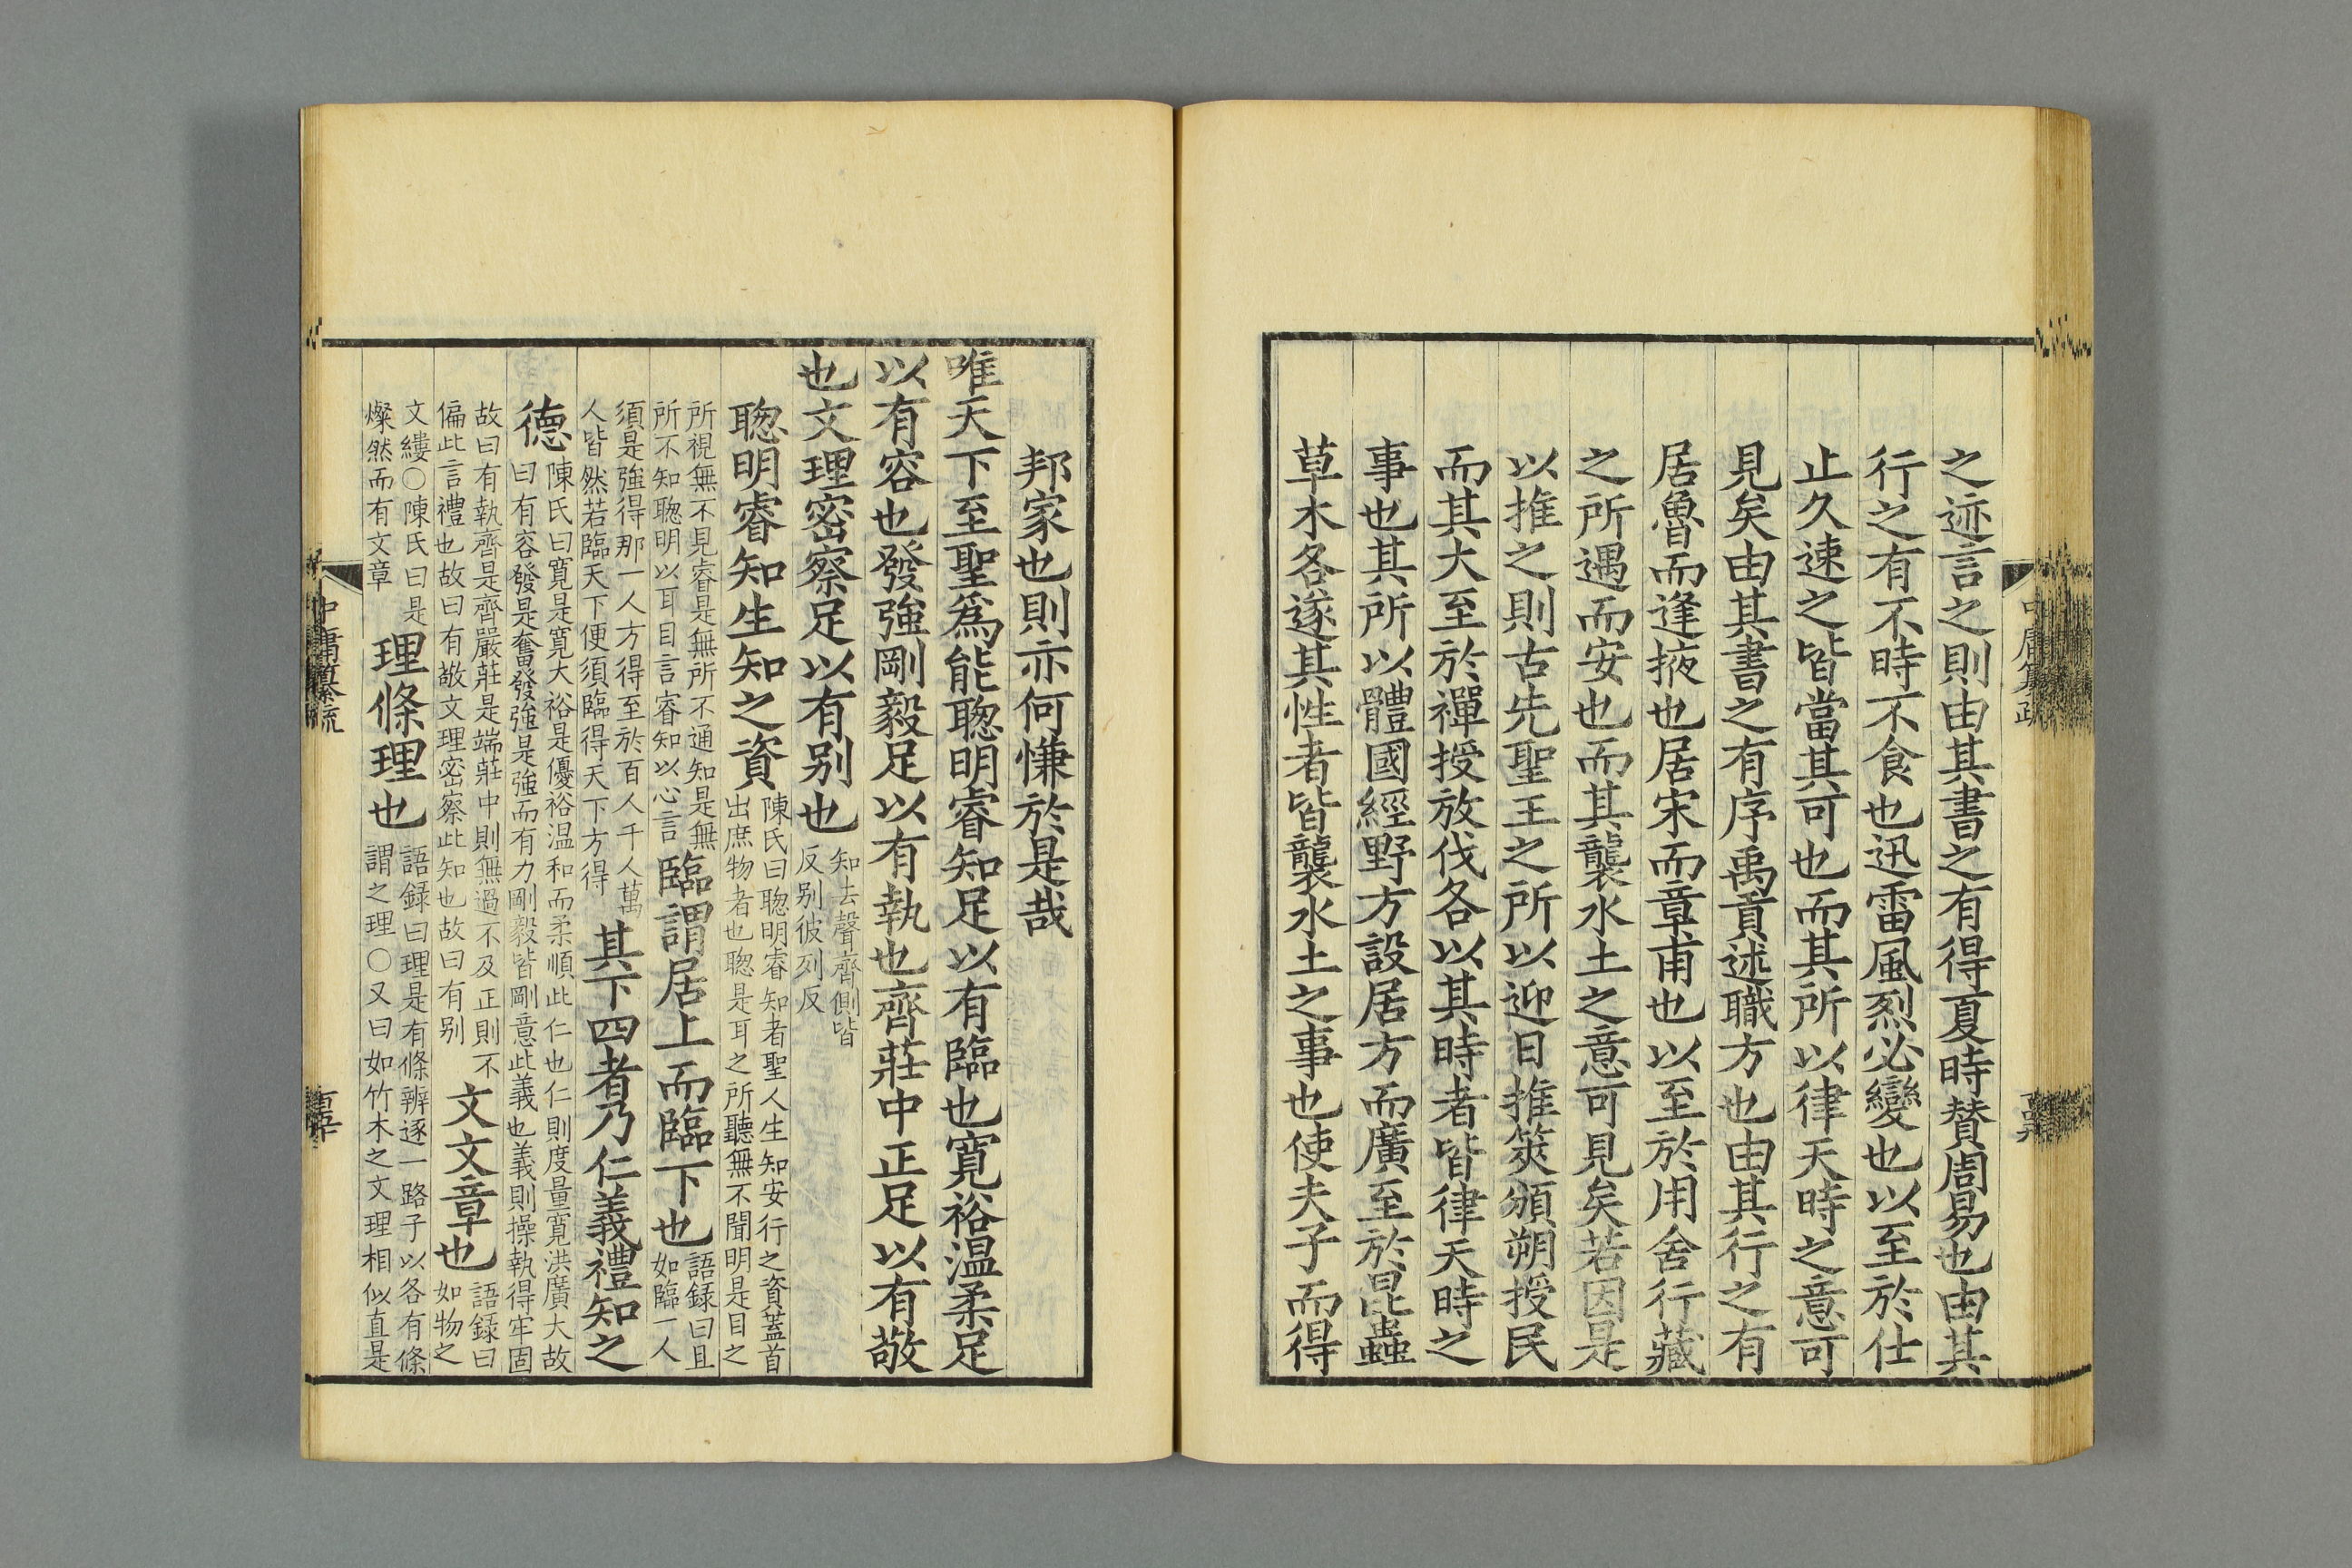 之迹言之則由其書之有得夏時贊周易也由其
行之有不時不食也迅雷風烈必變也以至於仕
止久速之皆當其可也而其所以律天時之意可
見矣由其書之有序禹貢述職方也由其行之有
居魯而逢掖也居宋而章甫也以至於用舍行藏
之所遇而安也而其襲水土之意可見矣若因是
以推之則古先聖王之所以迎日推筴頒朔授民
而其大至於禪授放伐各以其時者皆律天時之
事也其所以體國經野方設居方而廣至於昆蟲
草木各遂其性者皆襲水土之事也使夫子而得
邦家也則亦何慊於是哉
唯天下至聖爲能聰明睿知足以有臨也寬裕温柔足
以有容也發強剛毅足以有執也齊莊中正足以有敬
也文理密察足以有别也
知去聲齊側皆
反别彼列反
聰明睿知生知之資
陳氏曰聰明睿知者聖人生知安行之資蓋首
出庶物者也聰是耳之所聽無不聞明是目之
所視無不見睿是無所不通知是無
所不知聰明以耳目言睿知以心言
臨謂居上而臨下也
語録曰且
如臨一人
須是強得那一人方得至於百人千人萬
人皆然若臨天下便須臨得天下方得
其下四者乃仁義禮知之
德
陳氏曰寬是寬大裕是優裕温和而柔順此仁也仁則度量寬洪廣大故
曰有容發是奮發強是強而有力剛毅皆剛意此義也義則操執得牢固
故曰有執齊是齊嚴莊是端莊中則無過不及正則不
偏此言禮也故曰有敬文理密察此知也故曰有别
文文章也
語録曰
如物之
文縷○陳氏曰是
燦然而有文章
理條理也
語録曰理是有條辨逐一路子以各有條
謂之理○又曰如竹木之文理相似直是
中庸纂疏